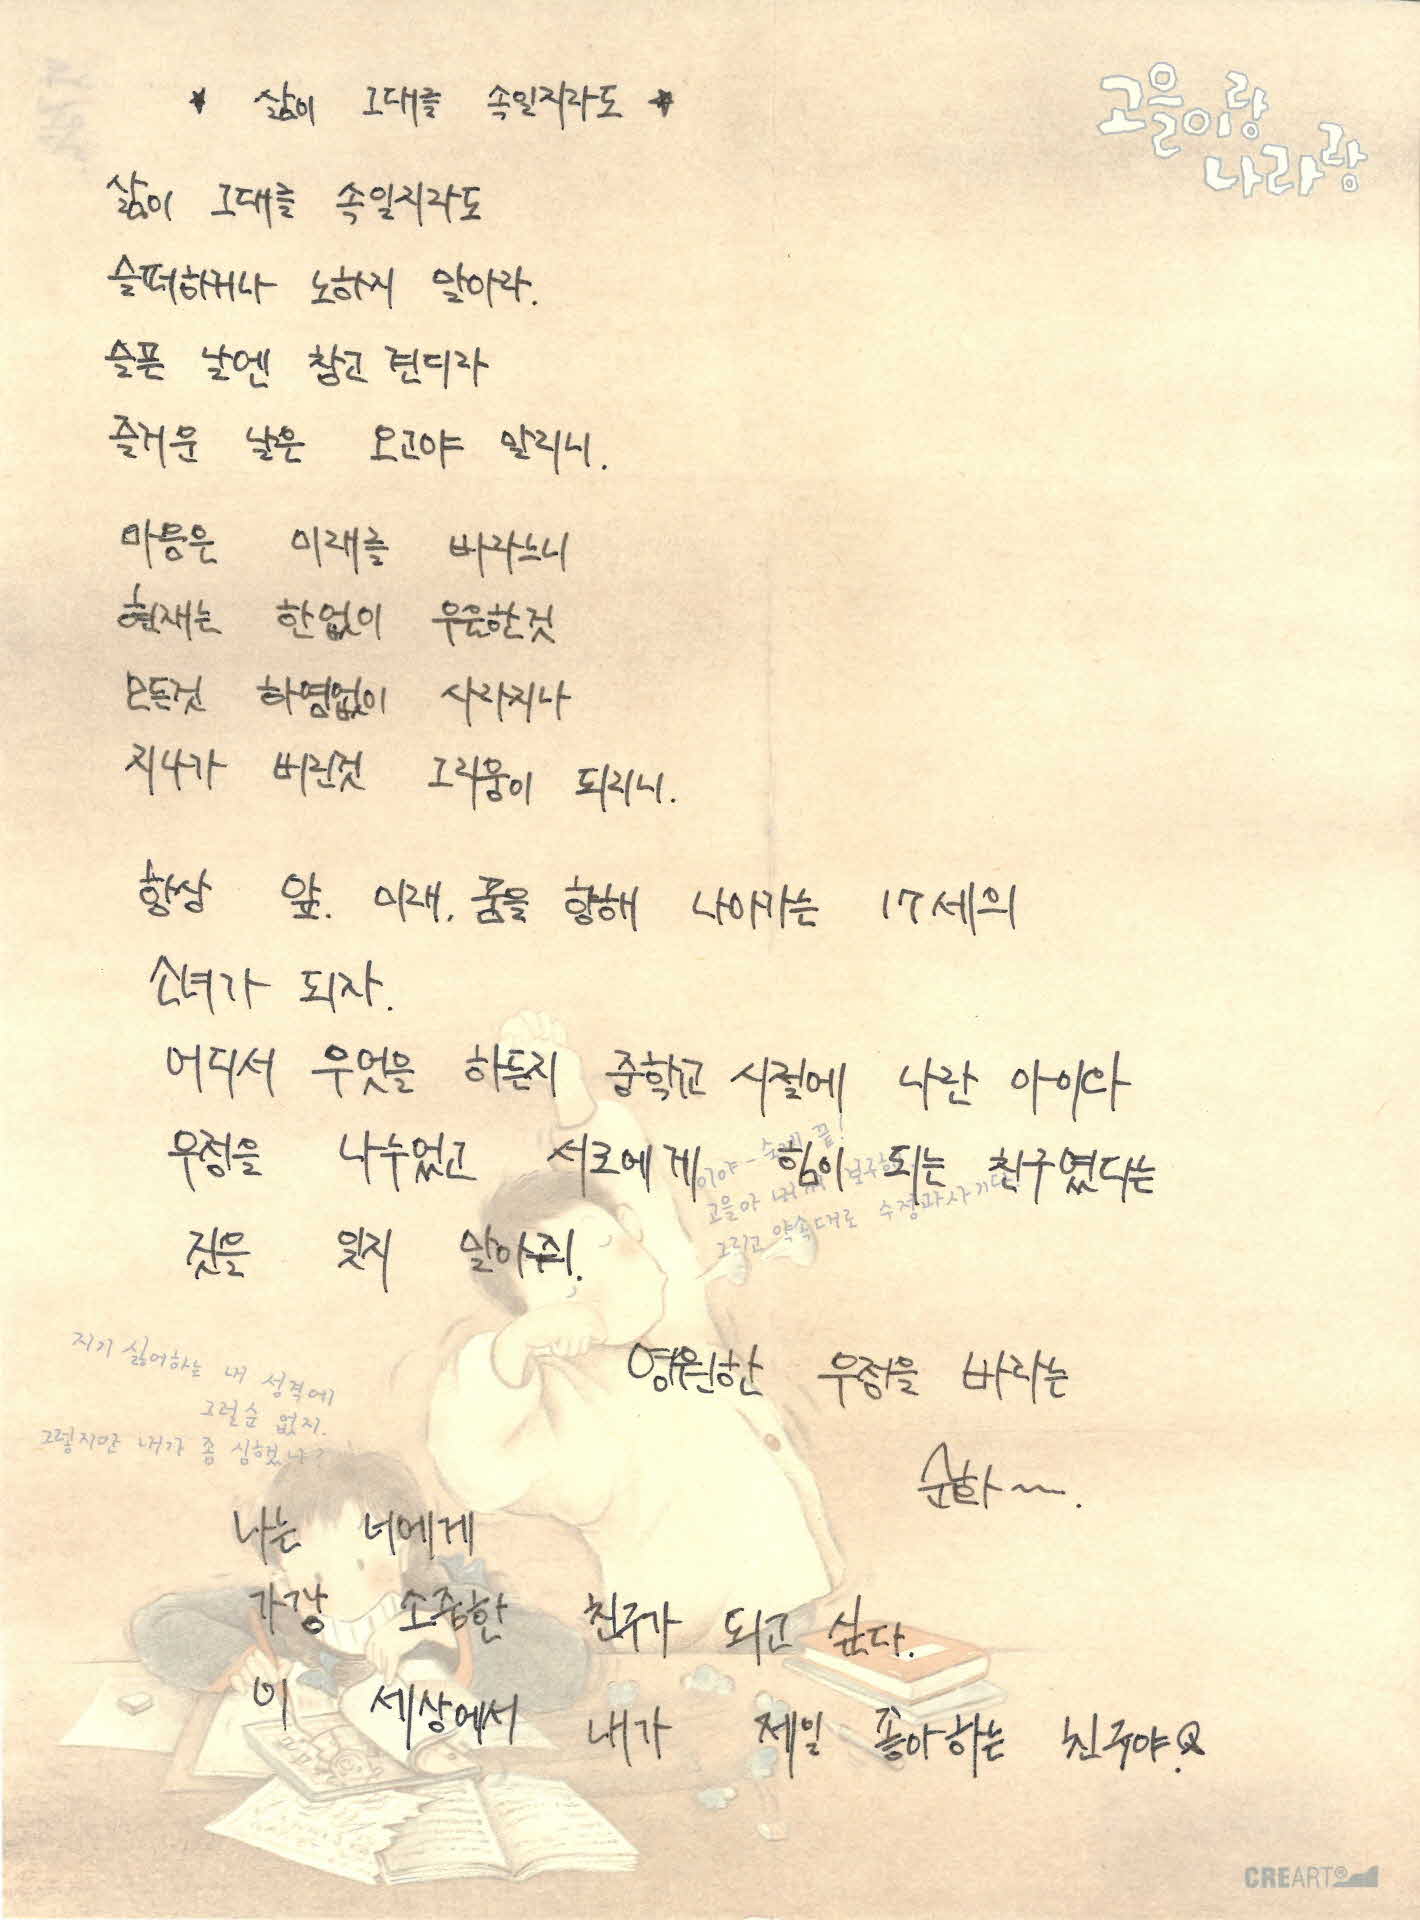 * 삶이 그대를 속일지라도 *
고을이랑
나라랑
삶이 그대를 속일지라도
슬퍼하거나 노하지 말아라.
슬픈 날엔 참고 견디라
즐거운 날은 오고야 말리니.
마음은 미래를 바라느니
현재는 한없이 우울한것
모든것 하염없이 사라지나
지나가 버린것 그리움이 되리니.
항상 앞. 미래. 꿈을 향해 나아가는 17세의
소녀가 되자.
어디서 무엇을 하든지 중학교 시절에 나란 아이와
우정을 나누었고 서로에게 힘이 되는 친구였다는
것을 잊지 말아줘.
이야~ 숙제 끝!
고을아 내꺼 보구해
그리고 약속대로 수정과사기다
지기 싫어하는 내 성격에
그럴순 없지.
그렇지만 내가 좀 심했나?
영원한 우정을 바라는
순화~.
나는 너에게
가장 소중한 친구가 되고 싶다.
이 세상에서 내가 제일 좋아하는 친구야
CREART®